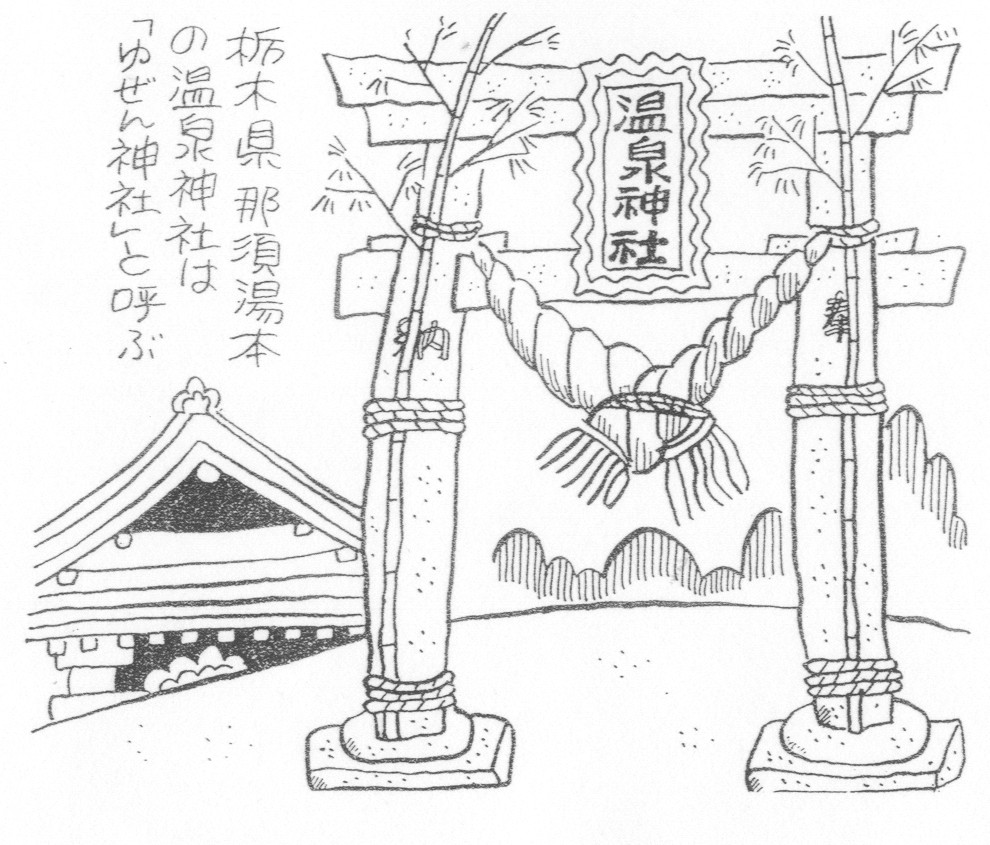 栃木県那須湯本
の温泉神社は
「ゆぜん神社」と呼ぶ
温泉神社
奉
納